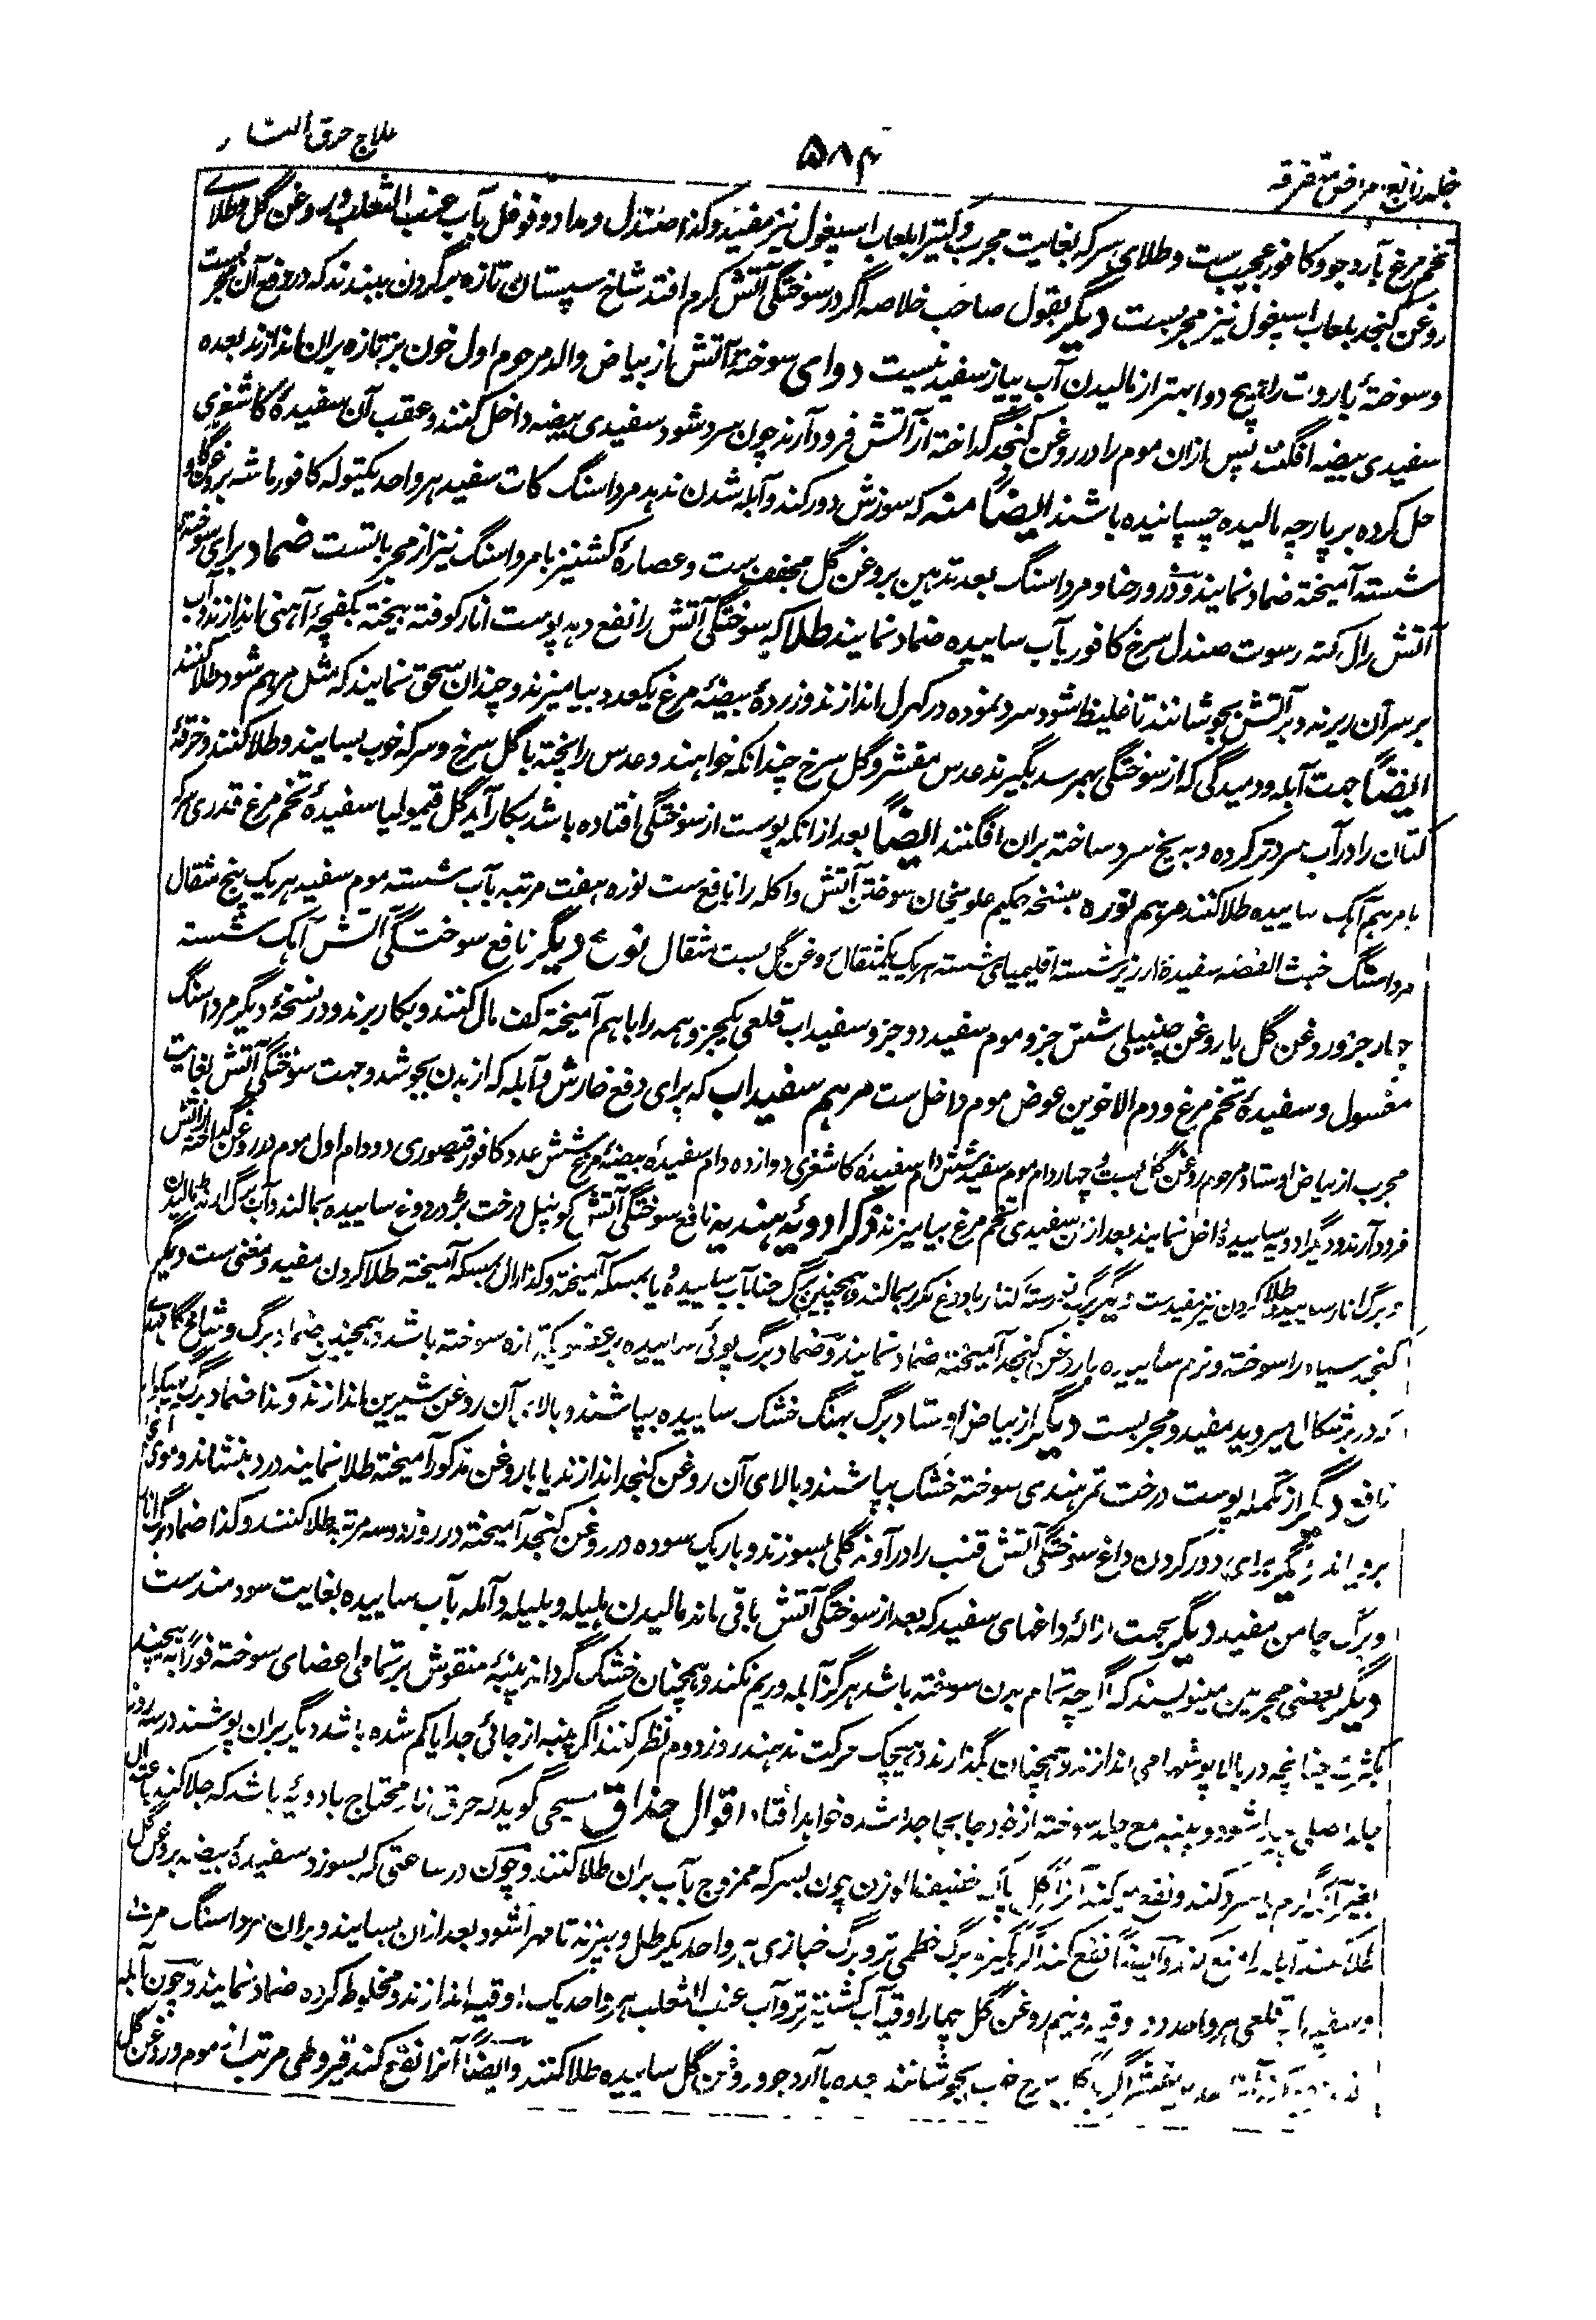 علاج حرق النار
۵۸۴
جلد رابع امراض متفرقه
تخم مرغ بآرد جو و کافور عجیب ست و طلای سرکه بغایت مجرب و کتیرا بلعاب اسپغول نیز مفید و کذا صندل و ماد و فوفل بآب عنب الثعلب و روغن گل و طلای
روغن کنجد بلعاب اسپغول نیز مجربست دیگر بقول صاحب خلاصه اگر در سوختگی آتش کرم افتد شاخ سپستان تازه بر گردن ببندند که در دفع آن مجربست
و سوختهٔ باروت را هیچ دوا بهتر از مالیدن آب پیاز سفید نیست دوای سوختهٔ آتش از بیاض والد مرحوم اول خون بز تازه بران اندازند بعده
سفیدی بیضه افگنند پس ازان موم را در روغن کنجد گداخته از آتش فرود آرند چون سرد شود سفیدی بیضه داخل کنند و عقب آن سفیدهٔ کاشغری
حل کرده بر پارچه مالیده چسپانیده باشند ایضاً منه که سوزش دور کند و آبله شدن ندهد مرداسنگ کات سفید هر واحد یکتوله کافور ماشه بروغن گاو
شسته آمیخته ضماد نمایند و ذرور رضا و مرداسنگ بعد تدهین بروغن گل مجفف ست و عصارهٔ کشنیز با مرداسنگ نیز از مجرباتست ضماد برای سوختهٔ
آتش رال کته رسوت صندل سرخ کافور بآب ساییده ضماد نمایند طلا که سوختگی آتش را نفع دهد پوست انار کوفته بیخته بکفچهٔ آهنی اندازند و آب
بر سر آن ریزند و بر آتش بجوشانند تا غلیظ شود سرد نموده در کهرل اندازند و زردهٔ بیضهٔ مرغ یکعدد بیامیزند و چندان سحق نمایند که مثل مرهم شود طلا کنند
ایضاً جهت آبله و دمیدگی که از سوختگی بهم رسد بگیرند عدس مقشر و گل سرخ چندانکه خواهند و عدس را پخته با گل سرخ و سرکه خوب بسایند و طلا کنند و خرقهٔ
کتان را در آب سرد تر کرده و به یخ سرد ساخته بران افگنند ایضاً بعد ازانکه پوست از سوختگی افتاده باشد بکار آید گل قیمولیا سفیدهٔ تخم مرغ قدری سرکه
با مرهم آهک ساییده طلا کنند مرهم نوره بنسخه حکیم علویخان سوختن آتش و اکله را نافع ست نوره هفت مرتبه بآب شسته موم سفید هر یک پنج مثقال
مرداسنگ خبث الفضه سفیدهٔ ارزیز شسته اقلیمیای شسته هر یک یکمثقال روغن گل بست مثقال نوع دیگر نافع سوختگی آتش آهک شسته
چهار جزو روغن گل یا روغن چنبیلی شش جزو موم سفید دو جزو سفیداب قلعی یکجزو همه را باهم آمیخته کف مال کنند و بکار برند و در نسخهٔ دیگر مرداسنگ
مغسول و سفیدهٔ تخم مرغ و دم الاخوین عوض موم داخل ست مرهم سفیداب که برای دفع خارش و آبله که از بدن بجوشد و جهت سوختگی آتش بغایت
مجرب از بیاض اوستاد مرحوم روغن گل بست و چهار دام موم سفید شش دام سفیدهٔ کاشغری دوازده دام سفیدهٔ بیضهٔ مرغ شش عدد کافور قیصوری دو دام اول موم در روغن گداخته از آتش
فرود آرند و دیگر ادویه ساییده داخل نمایند بعد ازان سفیدی تخم مرغ بیامیزند ذکر ادویهٔ هندیه نافع سوختگی آتش کونپل درخت بڑ در دوغ ساییده بمالند و آب برگ مالیدن
و برگ انار ساییده طلا کردن نیز مفیدست دیگر برگ کنار با دوغ مکرر بمالند و همچنین برگ حنا بآب ساییده و یا بمسکه آمیخته و کذا رال بمسکه آمیخته طلا کردن مفید و مغنی ست دیگر
کنجد سیاه را سوخته و نرم ساییده با روغن کنجد آمیخته ضماد نمایند و ضماد برگ پوئی ساییده بر عضو یکه تازه سوخته باشد و همچنین ضماد برگ و شاخ
که در برشکال میروید مفید و مجربست دیگر از بیاض اوستاد برگ بهنگ خشک ساییده بپاشند و بالای آن روغن شیرین اندازند و کذا ضماد برگ
نافع دیگر از تکمله پوست درخت تمر هندی سوخته خشک بپاشند و بالای آن روغن کنجد اندازند یا با روغن مذکور آمیخته طلا نمایند درد بنشاند و موی
برویاند دیگر برای دور کردن داغ سوختگی آتش قنب را در آوند گلی بسوزند و باریک سوده در روغن کنجد آمیخته در روز دو سه مرتبه طلا کنند و کذا ضماد برگ انار
و برگ جامن مفید دیگر بجهت ازالهٔ داغهای سفید که بعد از سوختگی آتش باقی ماند مالیدن هلیله و بلیله و آمله بآب ساییده بغایت سودمندست
دیگر بعضی مجربین مینویسند که اگرچه تمام بدن سوخته باشد هرگز آبله و ریم نکند و همچنان خشک گرداند پنبهٔ منقوش بر تمامی اعضای سوخته فوراً بپیچند
بکثرت چنانچه در بالاپوشها می اندازند و همچنان بگذارند و هیچ حرکت ندهند روز دوم نظر کنند اگر پنبه از جائی جدا یا کم شده باشد دیگر بران پوشند در سه روز
جلد اصلی پیدا شود و پنبه مع جلد سوخته از خود جابجا جدا شده خواهد افتاد اقوال حذاق مسیحی گوید که حرق نار محتاج بادویهٔ باشد که جلا کند باعتدال
بغیر آنکه گرم یا سرد کند و نفع میکند آنرا گل پاک خفیف الوزن چون بسرکه ممزوج بآب بران طلا کنند و چون در ساعتی که بسوزد سفیدهٔ بیضه بروغن گل
طلا کنند آبله را منع کند و ایضاً نفع کند اگر بگیرند برگ خطمی تر و برگ خبازی هر واحد یکرطل و بپزند تا مهرا شود بعد ازان بسایند و بران مرداسنگ مربی
و سفیداب قلعی هر واحد دو وقیه و نیم روغن گل چهار اوقیه آب کشنیز تر و آب عنب الثعلب هر واحد یک اوقیه اندازند و مخلوط کرده ضماد نمایند و چون آبله
عدس مقشر گل سرخ خوب بجوشانند و به با آرد جو و روغن گل ساییده طلا کنند و ایضاً آنرا نفع کند قیروطی مرتب از موم و روغن گل